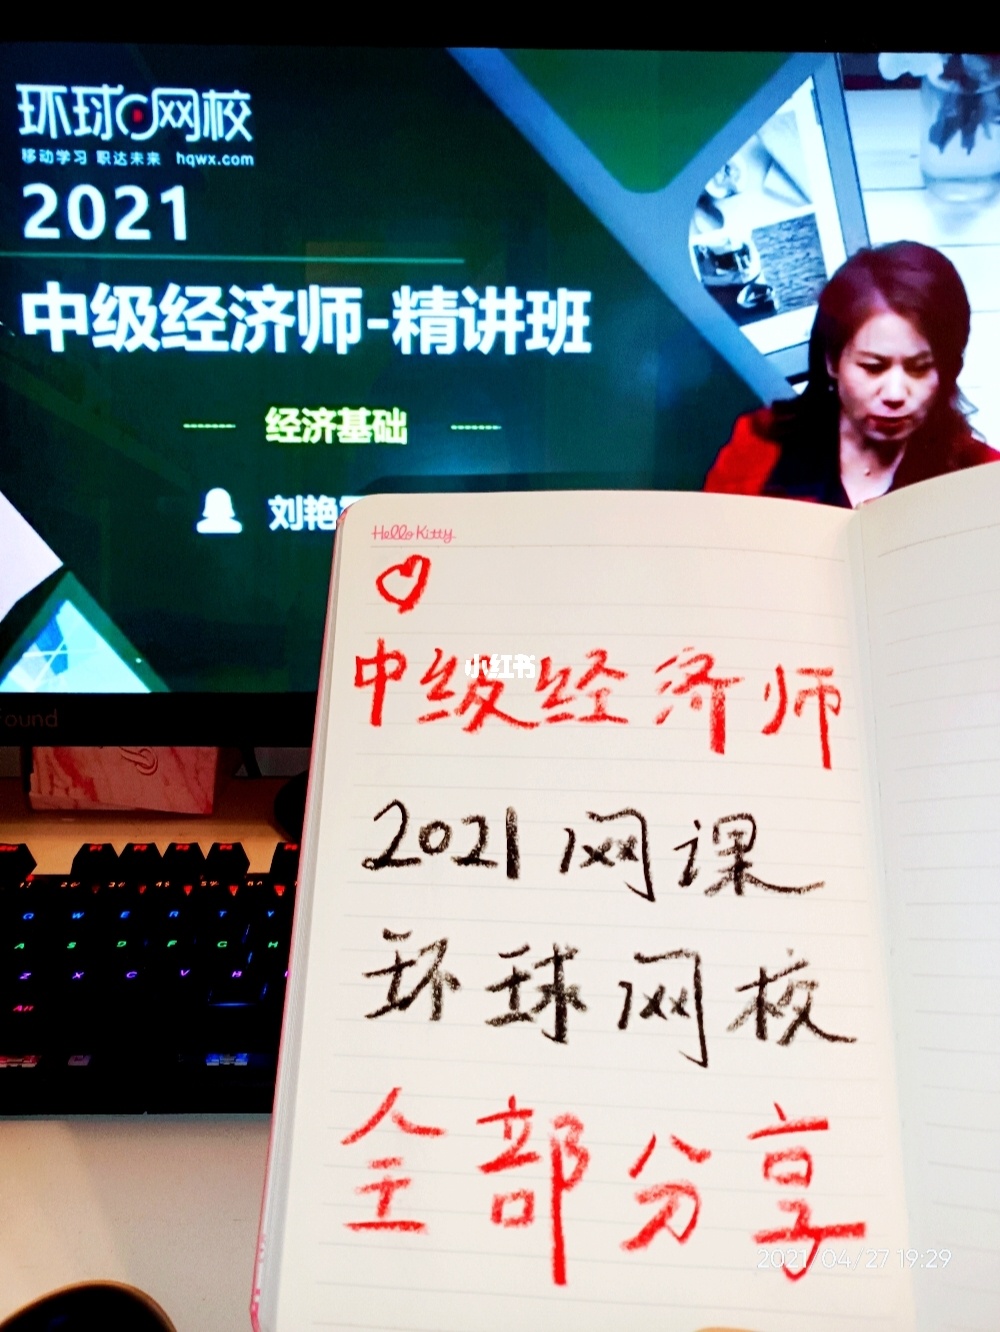 环球网校
移动学习 职达未来 hqwx.com
2021
中级经济师-精讲班
经济基础
刘艳
Hello Kitty
中级经济师
小红书
2021网课
环球网校
全部分享
2021/04/27 19:29
found
Q W E R T Y
A S D F G H
Z X C V B
Alt